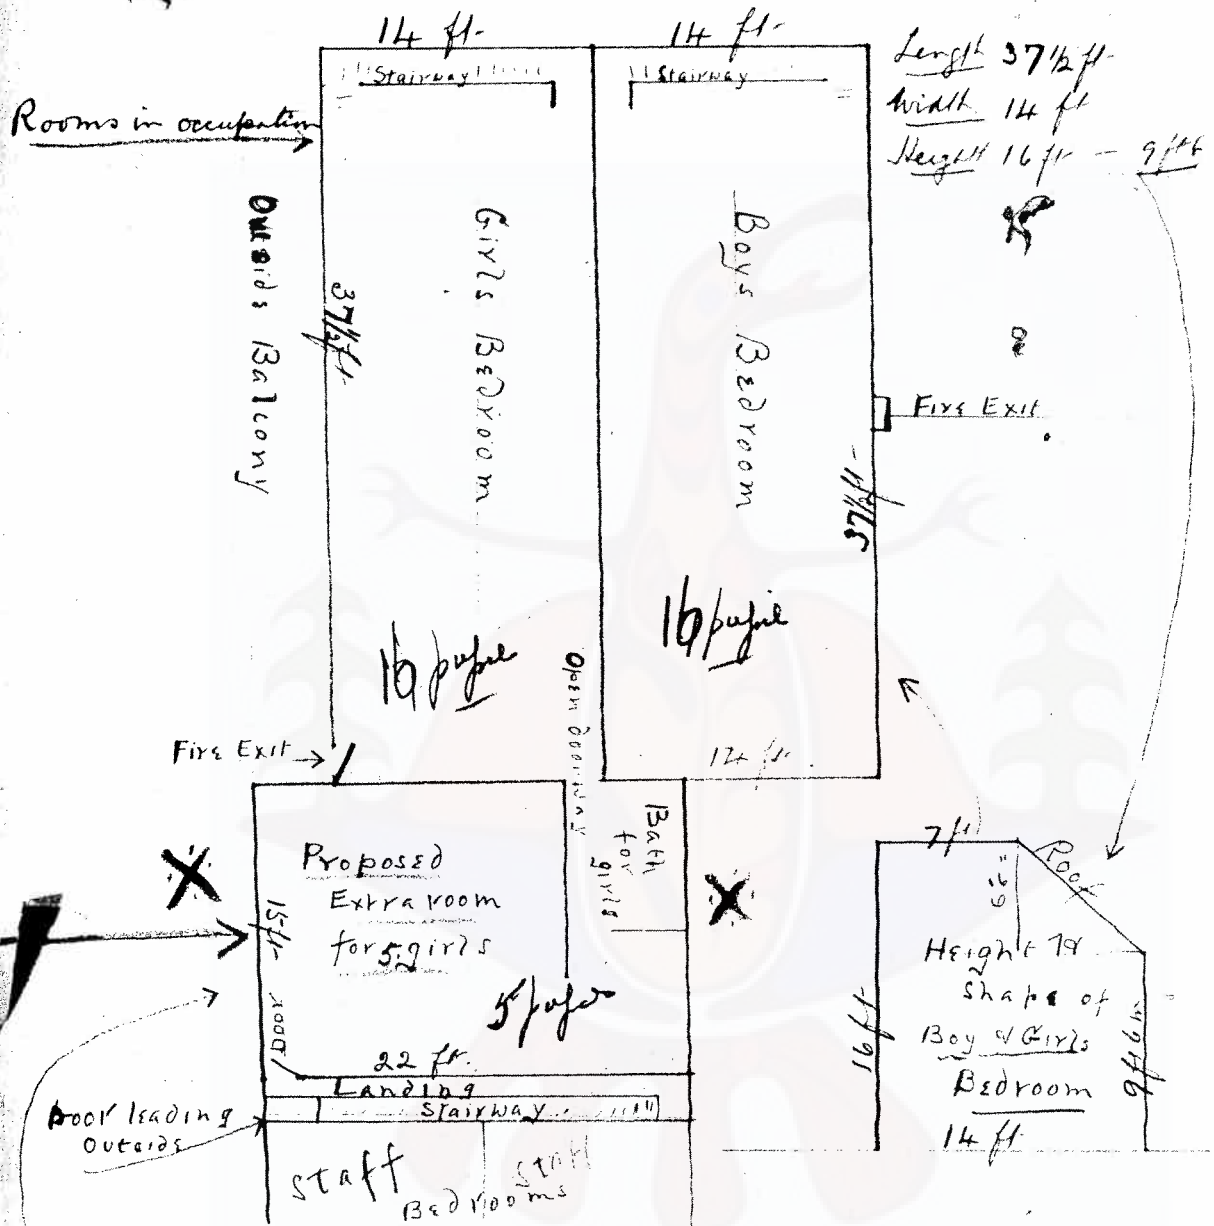 14 ft.
14 ft.
Length 37 1/2 ft.
Width 14 ft
Height 16 ft - 9 ft 6
Stairway
Stairway
Rooms in occupation
Outside Balcony
37 1/2 ft.
Girls Bedroom
Boys Bedroom
Fire Exit
37 1/2 ft
16 pupils
16 pupils
Open doorway
Fire Exit
14 ft.
Bath
for
girls
Proposed
Extra room
for 5. girls
15 ft.
5 pupils
Door
22 ft.
Landing
Stairway
Door leading
Outside
Staff
Staff
Bedrooms
7 ft
Roof
6'6"
Height &
Shape of
Boy & Girls
Bedroom
16 ft
9 ft 6 in
14 ft